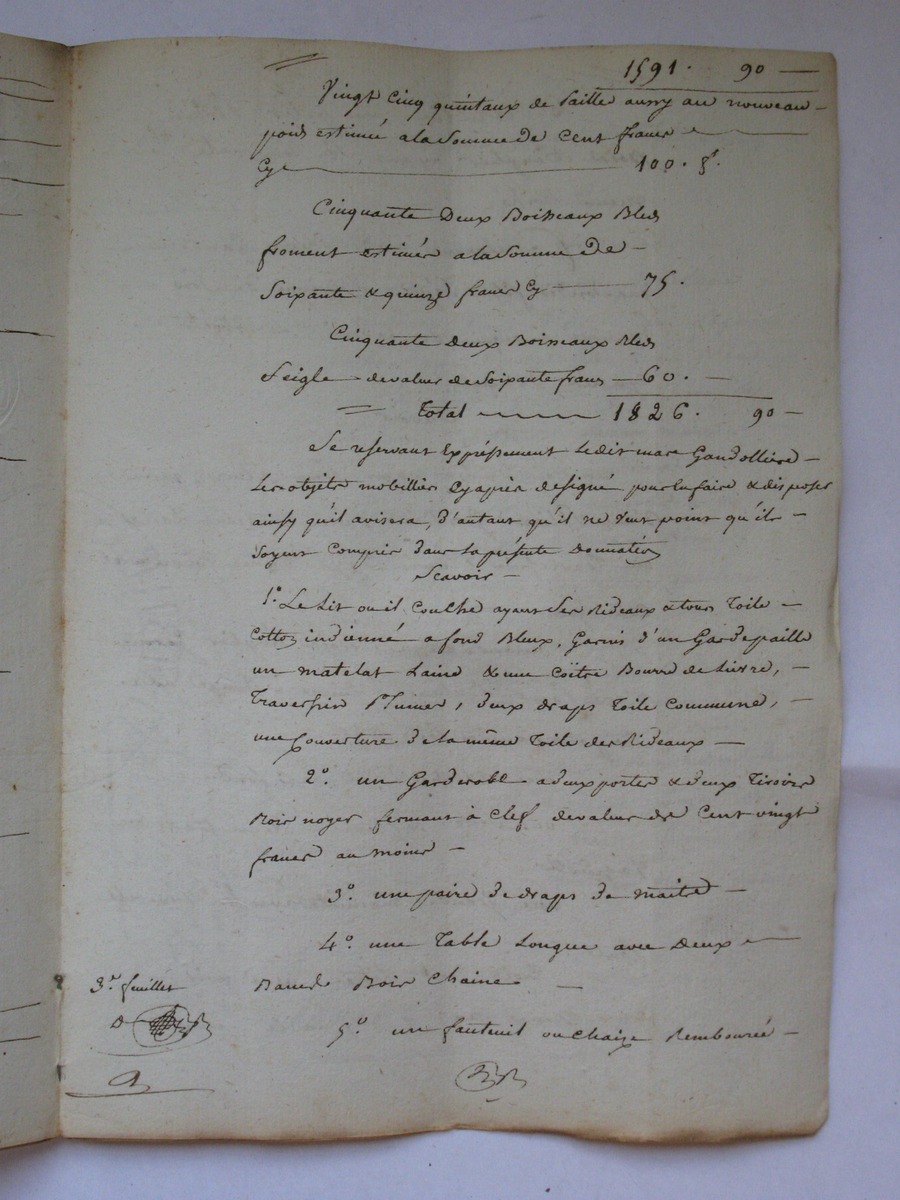 1591. 90 —
Vingt Cinq quintaux de paille aussy au nouveau
poids estimée a la Somme de Cent francs
Cy 100. f.
Cinquante Deux Boisseaux Bleds
froment estimés a la Somme de
Soixante & quinze francs Cy 75.
Cinquante Deux Boisseaux Bleds
Seigle de valeur de Soixante francs 60.
Total 1826. 90 —
Se reservant Expréssement Le dit marc Gandollière
Les objets mobilliers Cy après désigné pour en faire & disposer
ainsy qu'il avisera, d'autant qu'il ne veut point qu'ils
Soyent Compris dans La présente Donnation
Scavoir —
1°. Le Lit ou il Couche ayant Ses Rideaux & tours Toile
Cotton indienné a fond Bleux, Garnis d'un Gardepaille
un matelat Laine & une Coitre Bourre de Lievre,
Traversin Plumes, deux draps Toile Commune,
une Couverture de la même Toile des Rideaux —
2°. un Garderobe a deux portes & deux Tiroirs
Bois noyer fermant à Clef de valeur de Cent vingt
francs au moins —
3°. une paire de draps de maitre —
4°. une Table Longue avec Deux
Bancs Bois Chaine —
5°. un fauteuil ou Chaize Rembourée —
3e. feuillet